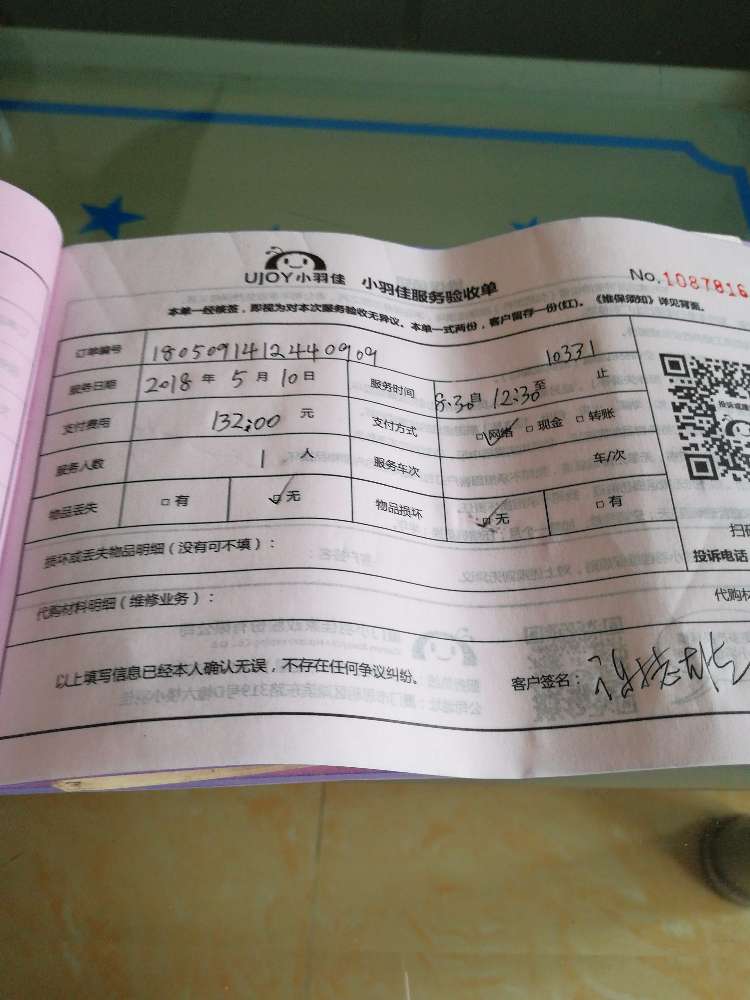 UJOY小羽佳 小羽佳服务验收单 No.1087816
本单一经核签，即视为对本次服务验收无异议。本单一式两份，客户留存一份(红)。《维保须知》详见背面。
订单编号 180509141244090909 10331
服务日期 2018 年 5 月 10 日 服务时间 8:30 自 12:30 至 止
支付费用 132:00 元 支付方式 □网络 □现金 □转账
服务人数 1 人 服务车次 车/次
物品丢失 □有 □无 物品损坏 □无 □有
损坏或丢失物品明细（没有可不填）：
扫码
投诉电话
代购材料明细（维修业务）：
代购材
以上填写信息已经本人确认无误，不存在任何争议纠纷。 客户签名：